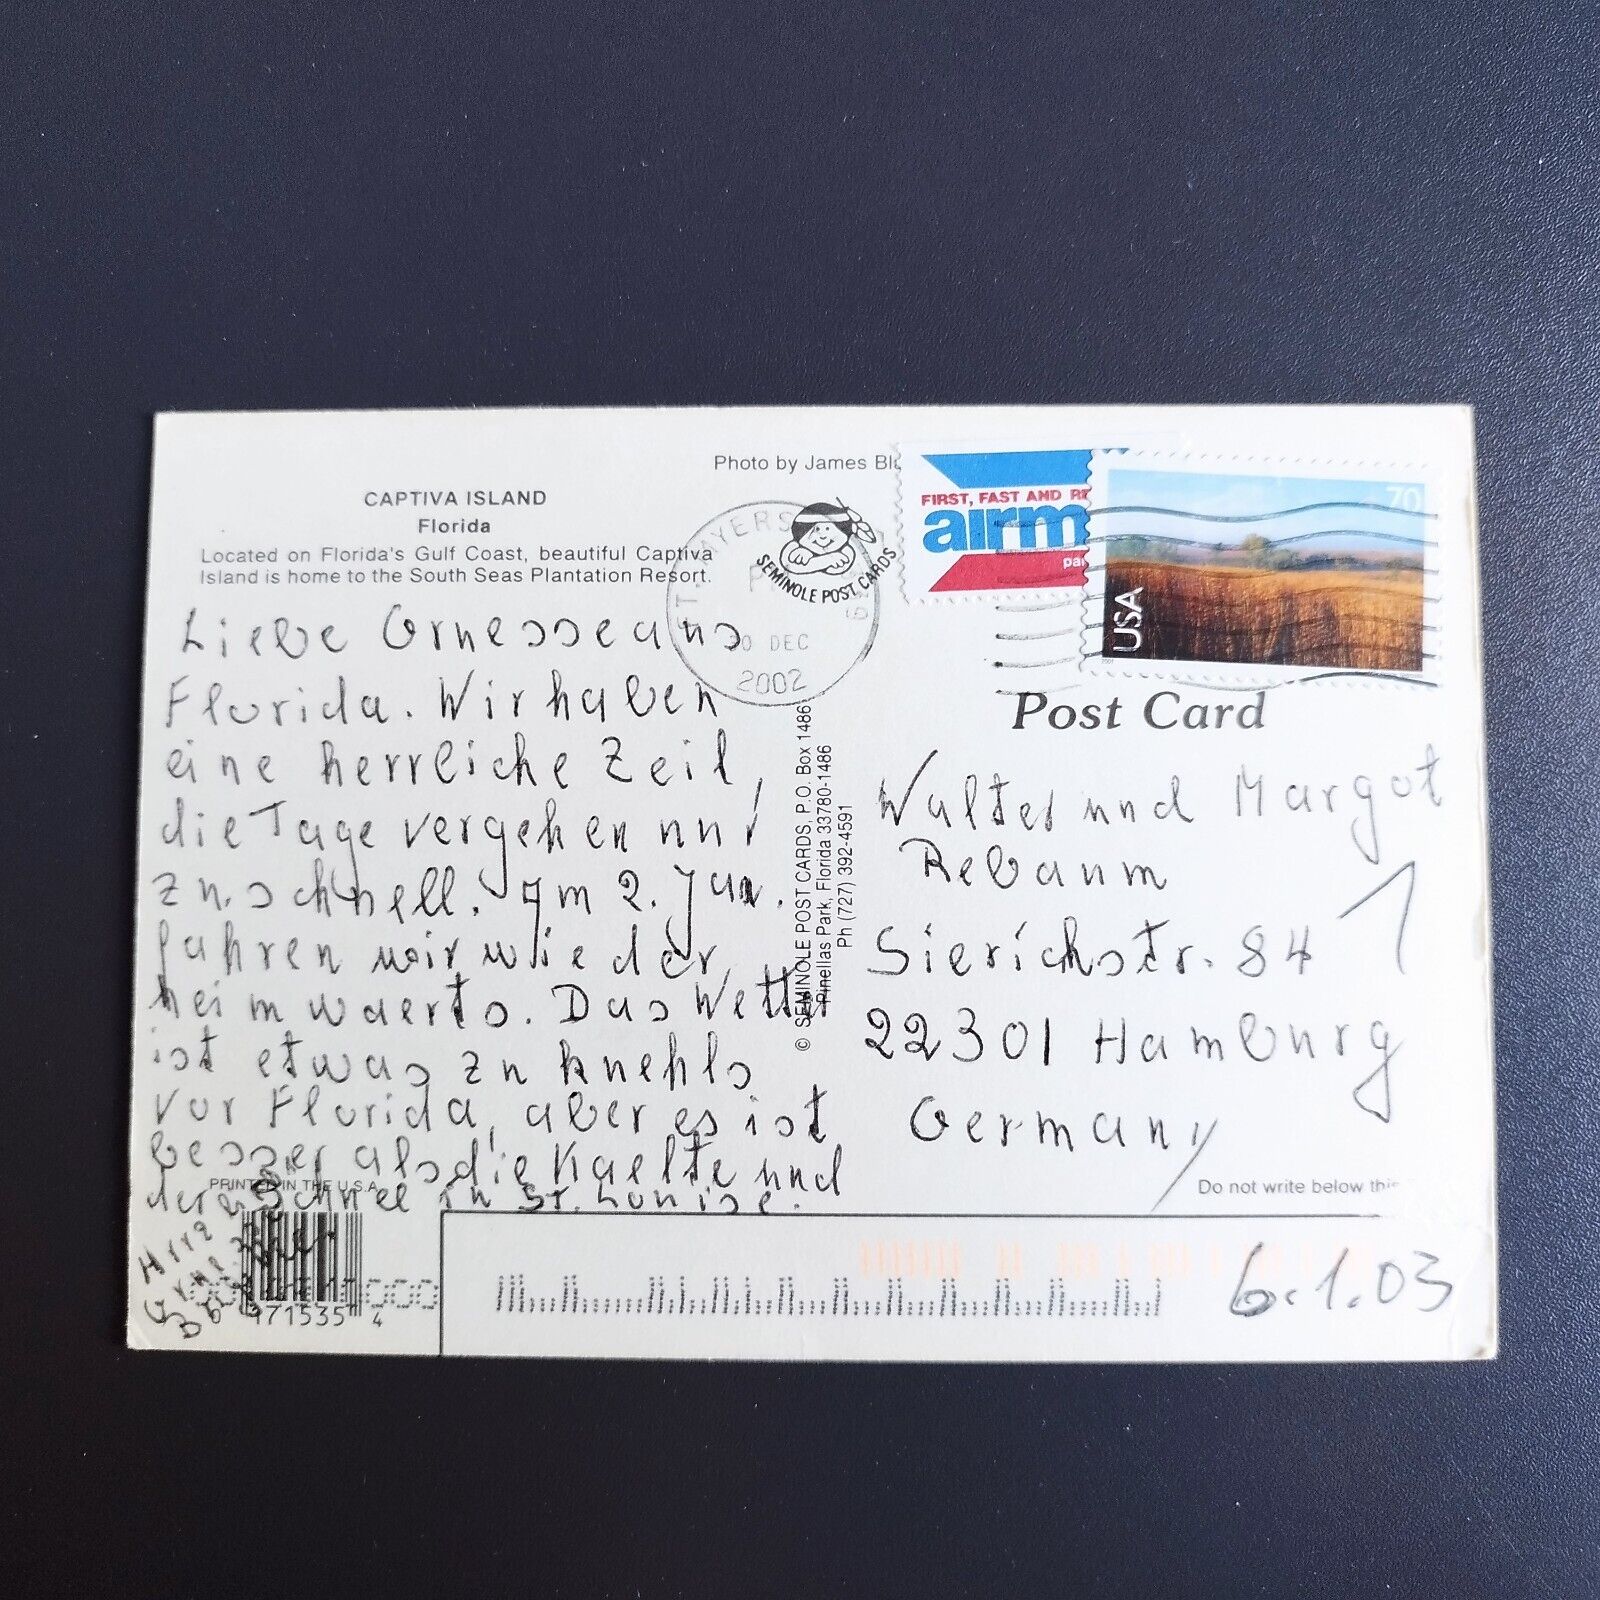 Photo by James
CAPTIVA ISLAND
Florida
Located on Florida's Gulf Coast, beautiful Captiva
Island is home to the South Seas Plantation Resort.
Liebe Gruesse aus
Florida. Wir haben
eine herrliche Zeit,
die Tage vergehen nur
zu schnell. Im 2. Jan.
fahren wir wieder
heimwaerts. Das Wetter
ist etwas zu kuehl
vor Florida, aber es ist
besser als die Kaelte und
der Schnee in St. Louise.
PRINTED IN THE U.S.A.
71535 4
SEMINOLE POST CARDS
30 DEC
2002
© SEMINOLE POST CARDS, P.O. Box 1486
Pinellas Park, Florida 33780-1486
Ph (727) 392-4591
FIRST, FAST AND
airm
pa
70
USA
2001
Post Card
Walter und Margot
Rebaum
Sierichstr. 84
22301 Hamburg
Germany
Do not write below this
6.1.03